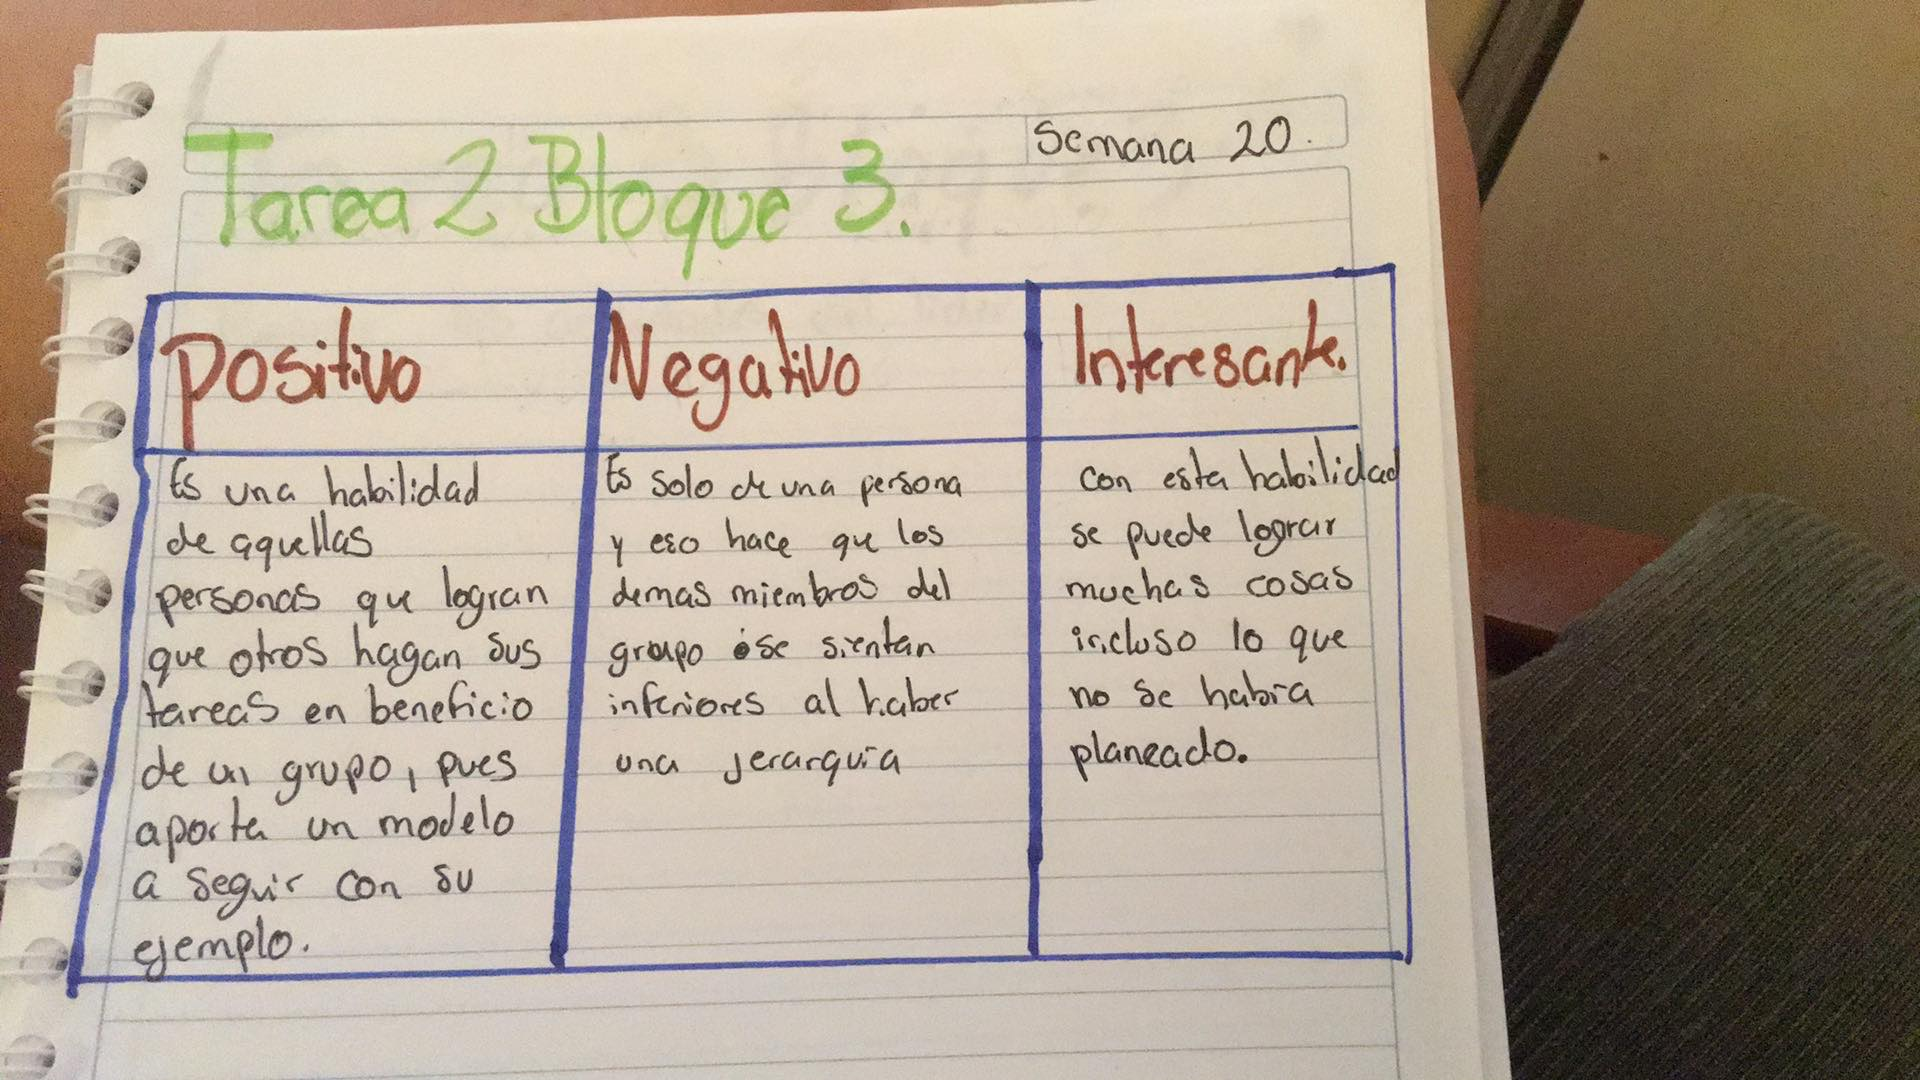 Semana 20.
Tarea 2 Bloque 3.
Positivo
Es una habilidad
de aquellas
personas que logran
que otros hagan sus
tareas en beneficio
de un grupo, pues
aporta un modelo
a seguir con su
ejemplo.
Negativo
Es solo de una persona
y eso hace que los
demas miembros del
grupo se sientan
inferiores al haber
una jerarquía
Interesante.
con esta habilidad
se puede lograr
muchas cosas
incluso lo que
no se habría
planeado.